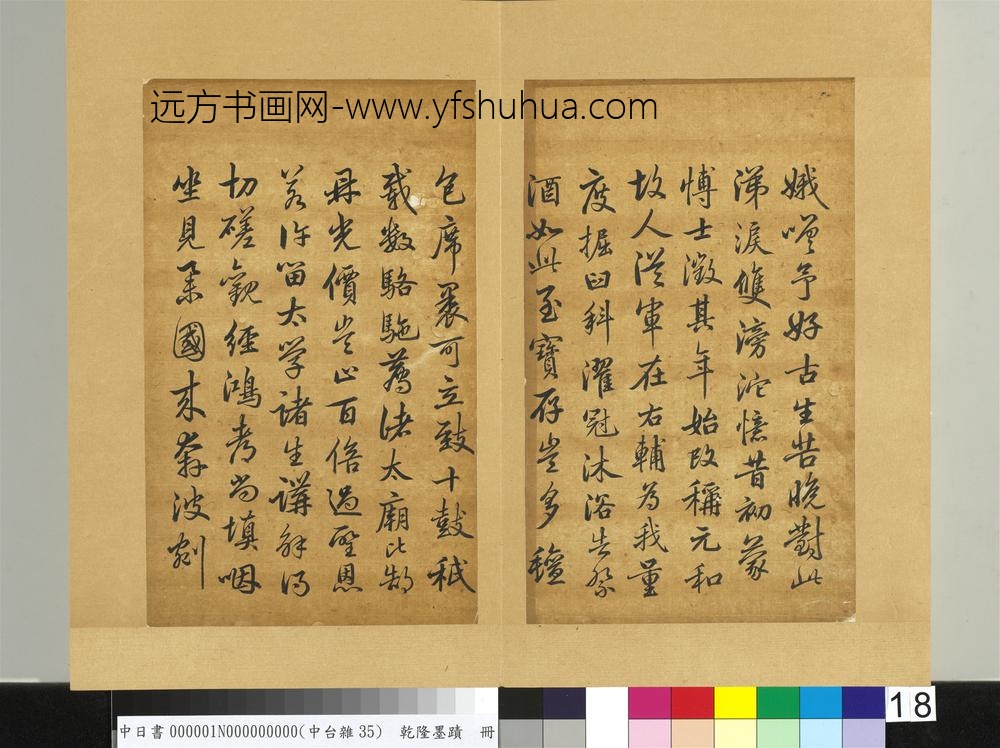 远方书画网-www.yfshuhua.com
娥嗟予好古生苦晚對此
涕淚雙滂沱憶昔初蒙
博士徵其年始改稱元和
故人從軍在右輔為我量
度掘臼科濯冠沐浴告祭
酒如此至寶存豈多氊
包席裹可立致十鼓祇
載數駱駞薦諸太廟比郜
鼎光價豈止百倍過聖恩
若許留太学諸生講解得
切磋觀經鴻都尚填咽
坐見舉國来奔波剜
18
中日書000001N000000000(中台雜35) 乾隆墨蹟 冊